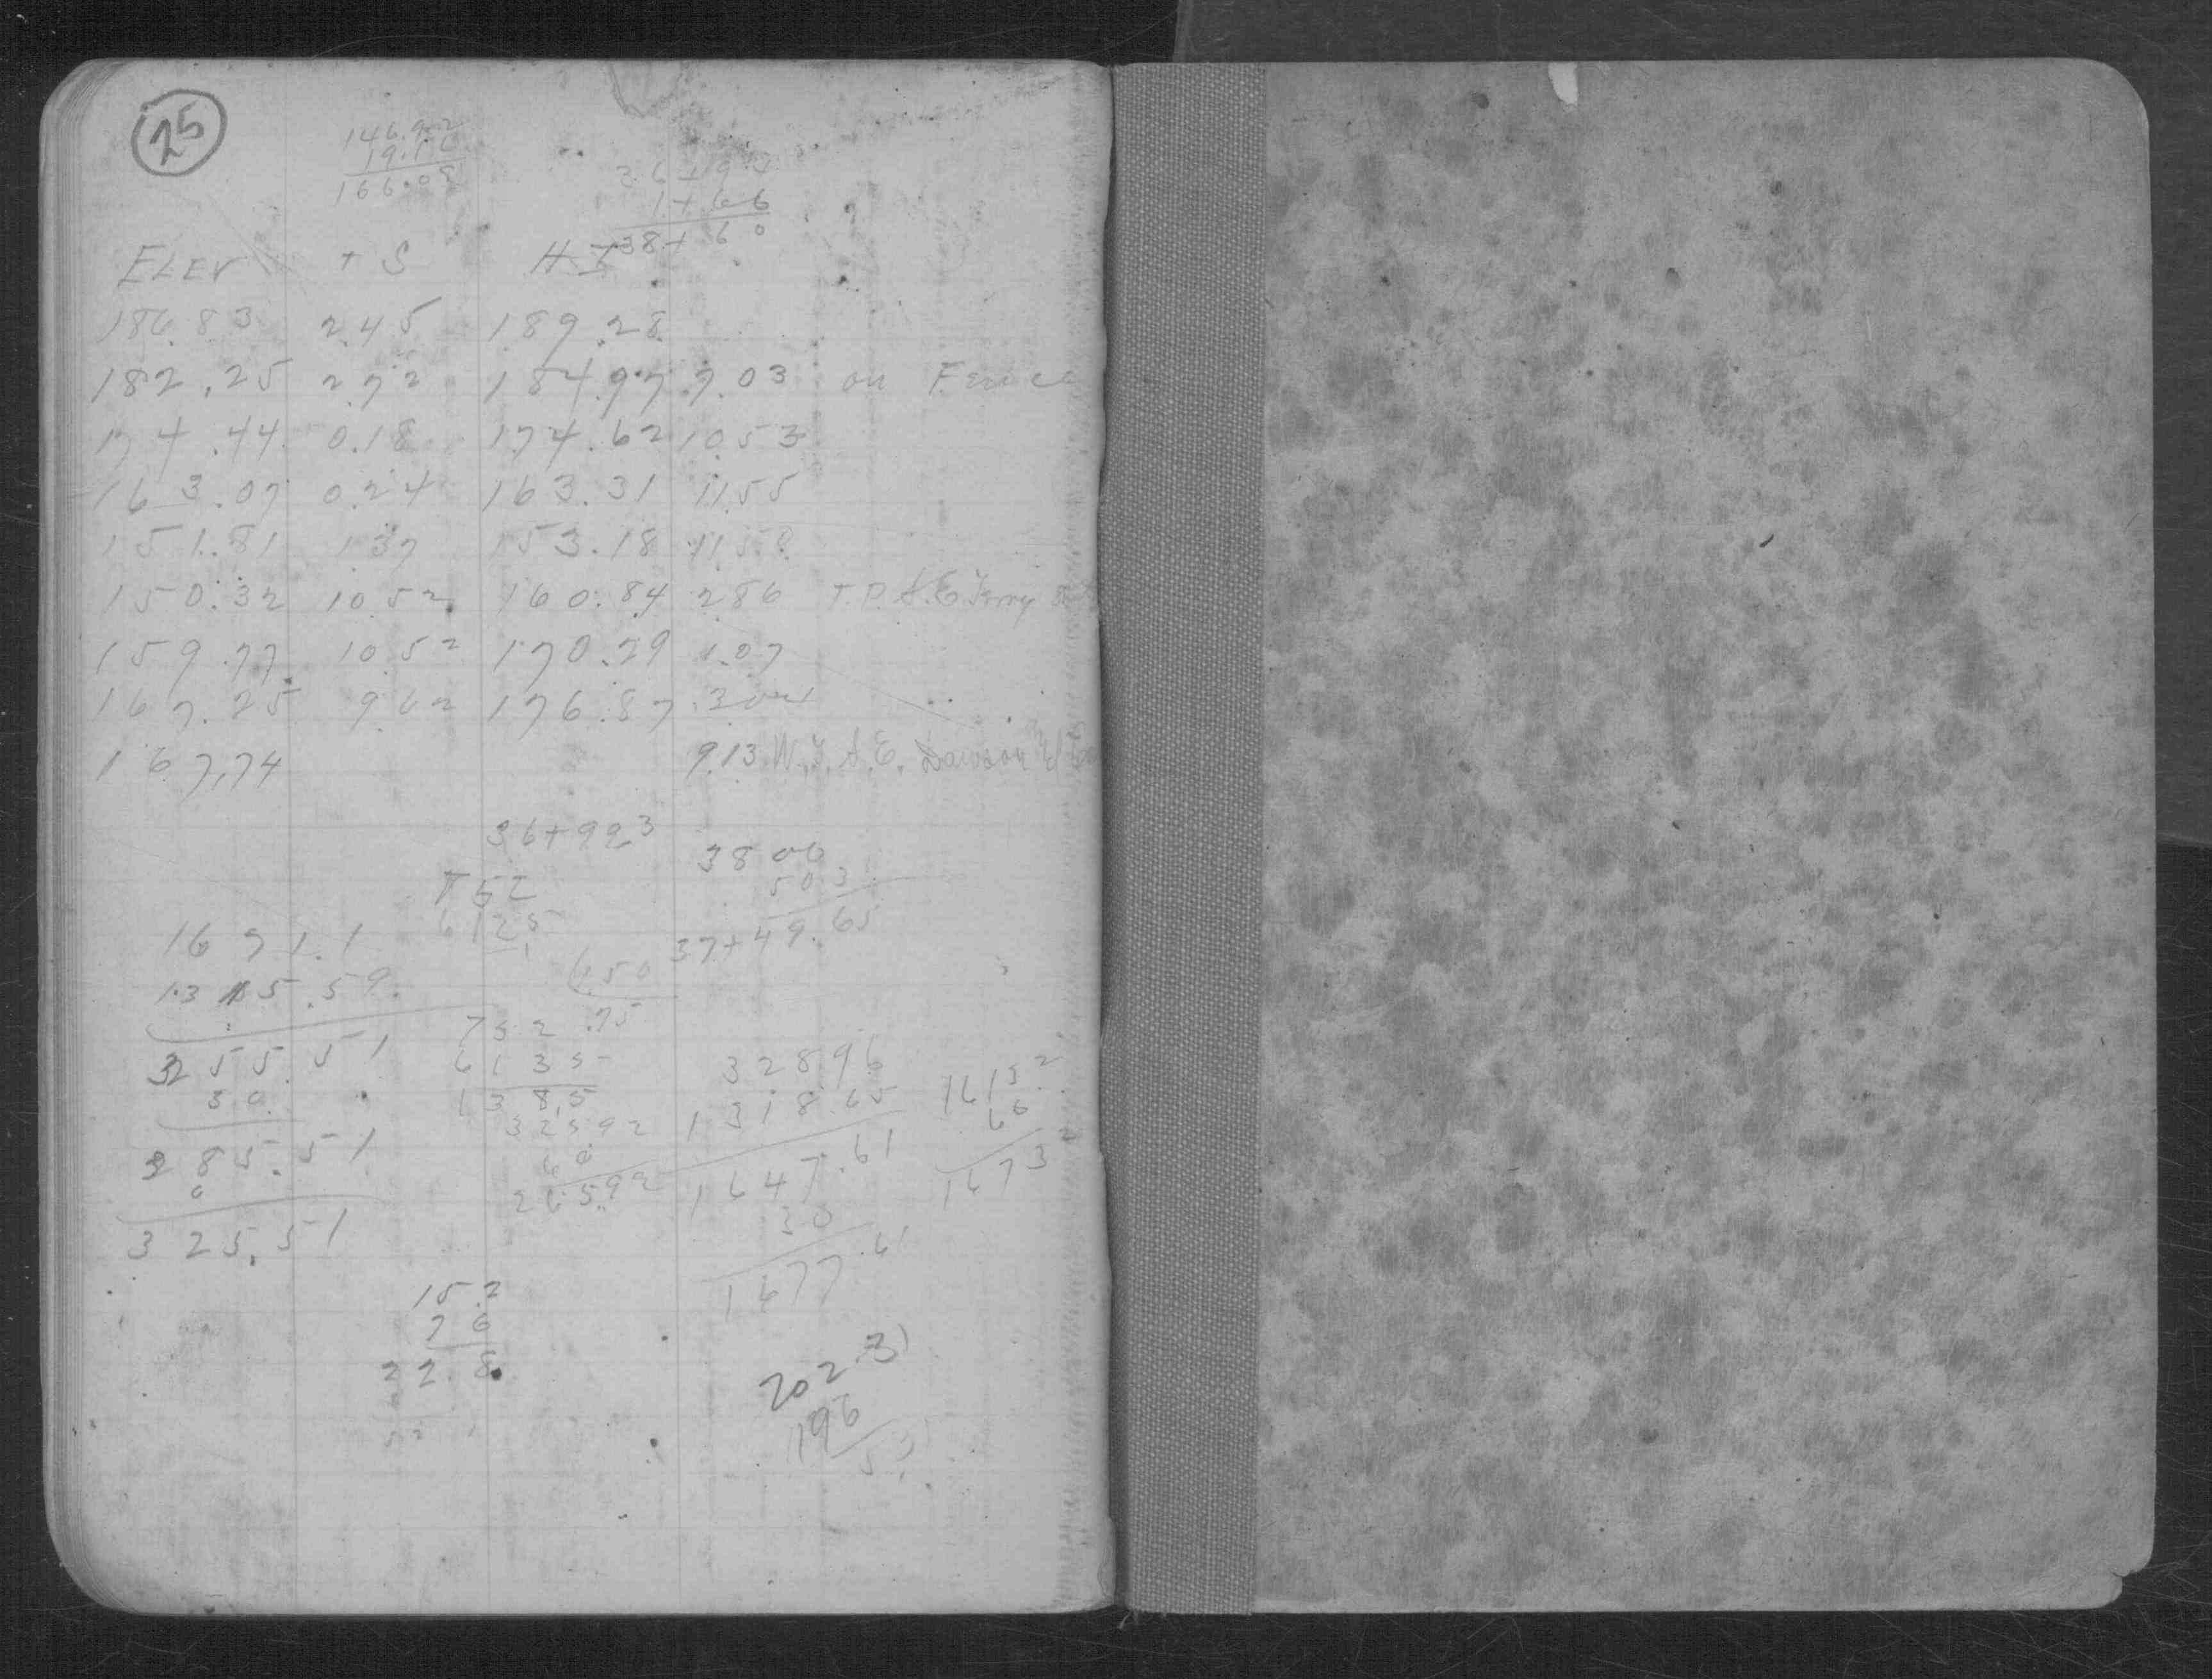 25
166.08
1+66
38+60
ELEV + S H I
186.83 2.45 189.28
182.25 2.72 184.97 7.03 on Fence
174.44 0.18 174.62 10.53
163.07 0.24 163.31 11.55
151.81 1.37 153.18 11.58
150.32 10.52 160.84 2.86 T.P. S.E. Terry
159.77 10.52 170.29 1.07
167.25 9.62 176.87 3.04
167.74 9.13 S.E. Dawson
36+993
3800
503
37+49.65
752
6125
1671.1
1315.59
650
.75
355.51
30
285.51
0
325.51
752
6135
138.5
32592
60
26592
32896
1318.65
1647.61
30
1677.61
1613.2
60
1673.2
15.2
76
22.8
202.31
196